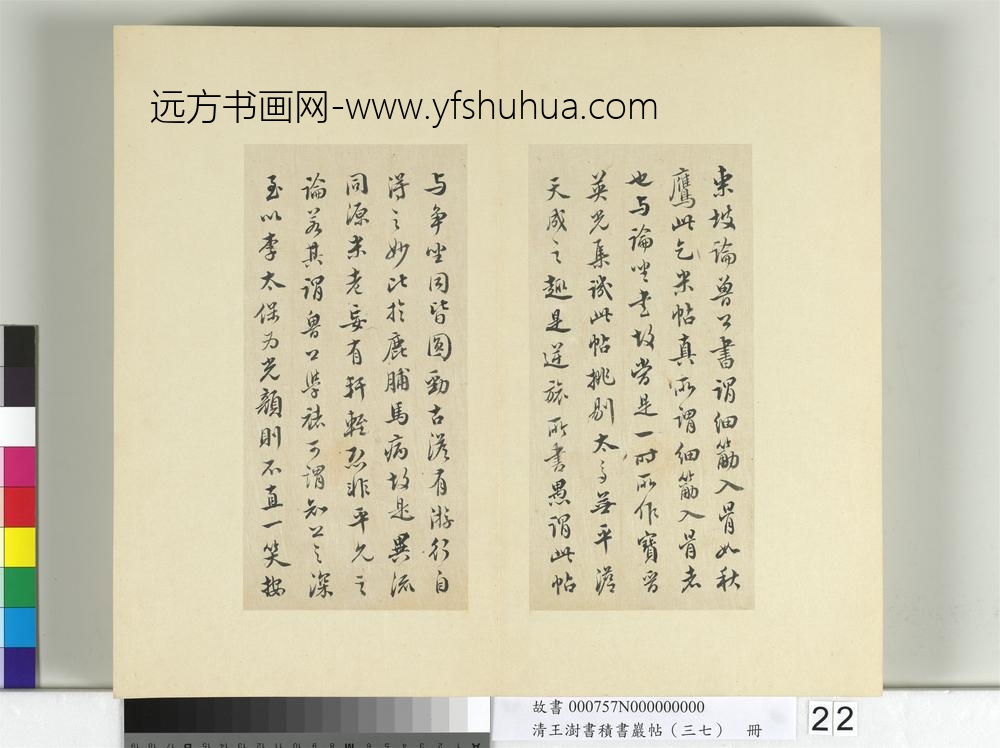 远方书画网-www.yfshuhua.com
東坡論魯公書謂細筋入骨如秋
鷹此乞米帖真所謂細筋入骨者
也与論坐書故當是一时所作寶晋
英光集譏此帖挑剔太多無平澹
天成之趣是逆旅所書愚謂此帖
与争坐同皆圓勁古澹有游行自
得之妙比於鹿脯馬病故是異流
同源米老妄有軒輊恐非平允之
論若其謂魯公學褚可謂知公之深
至以李太保为光顏則不直一笑按
故書 000757N000000000
清王澍書積書巖帖（三七） 冊
22